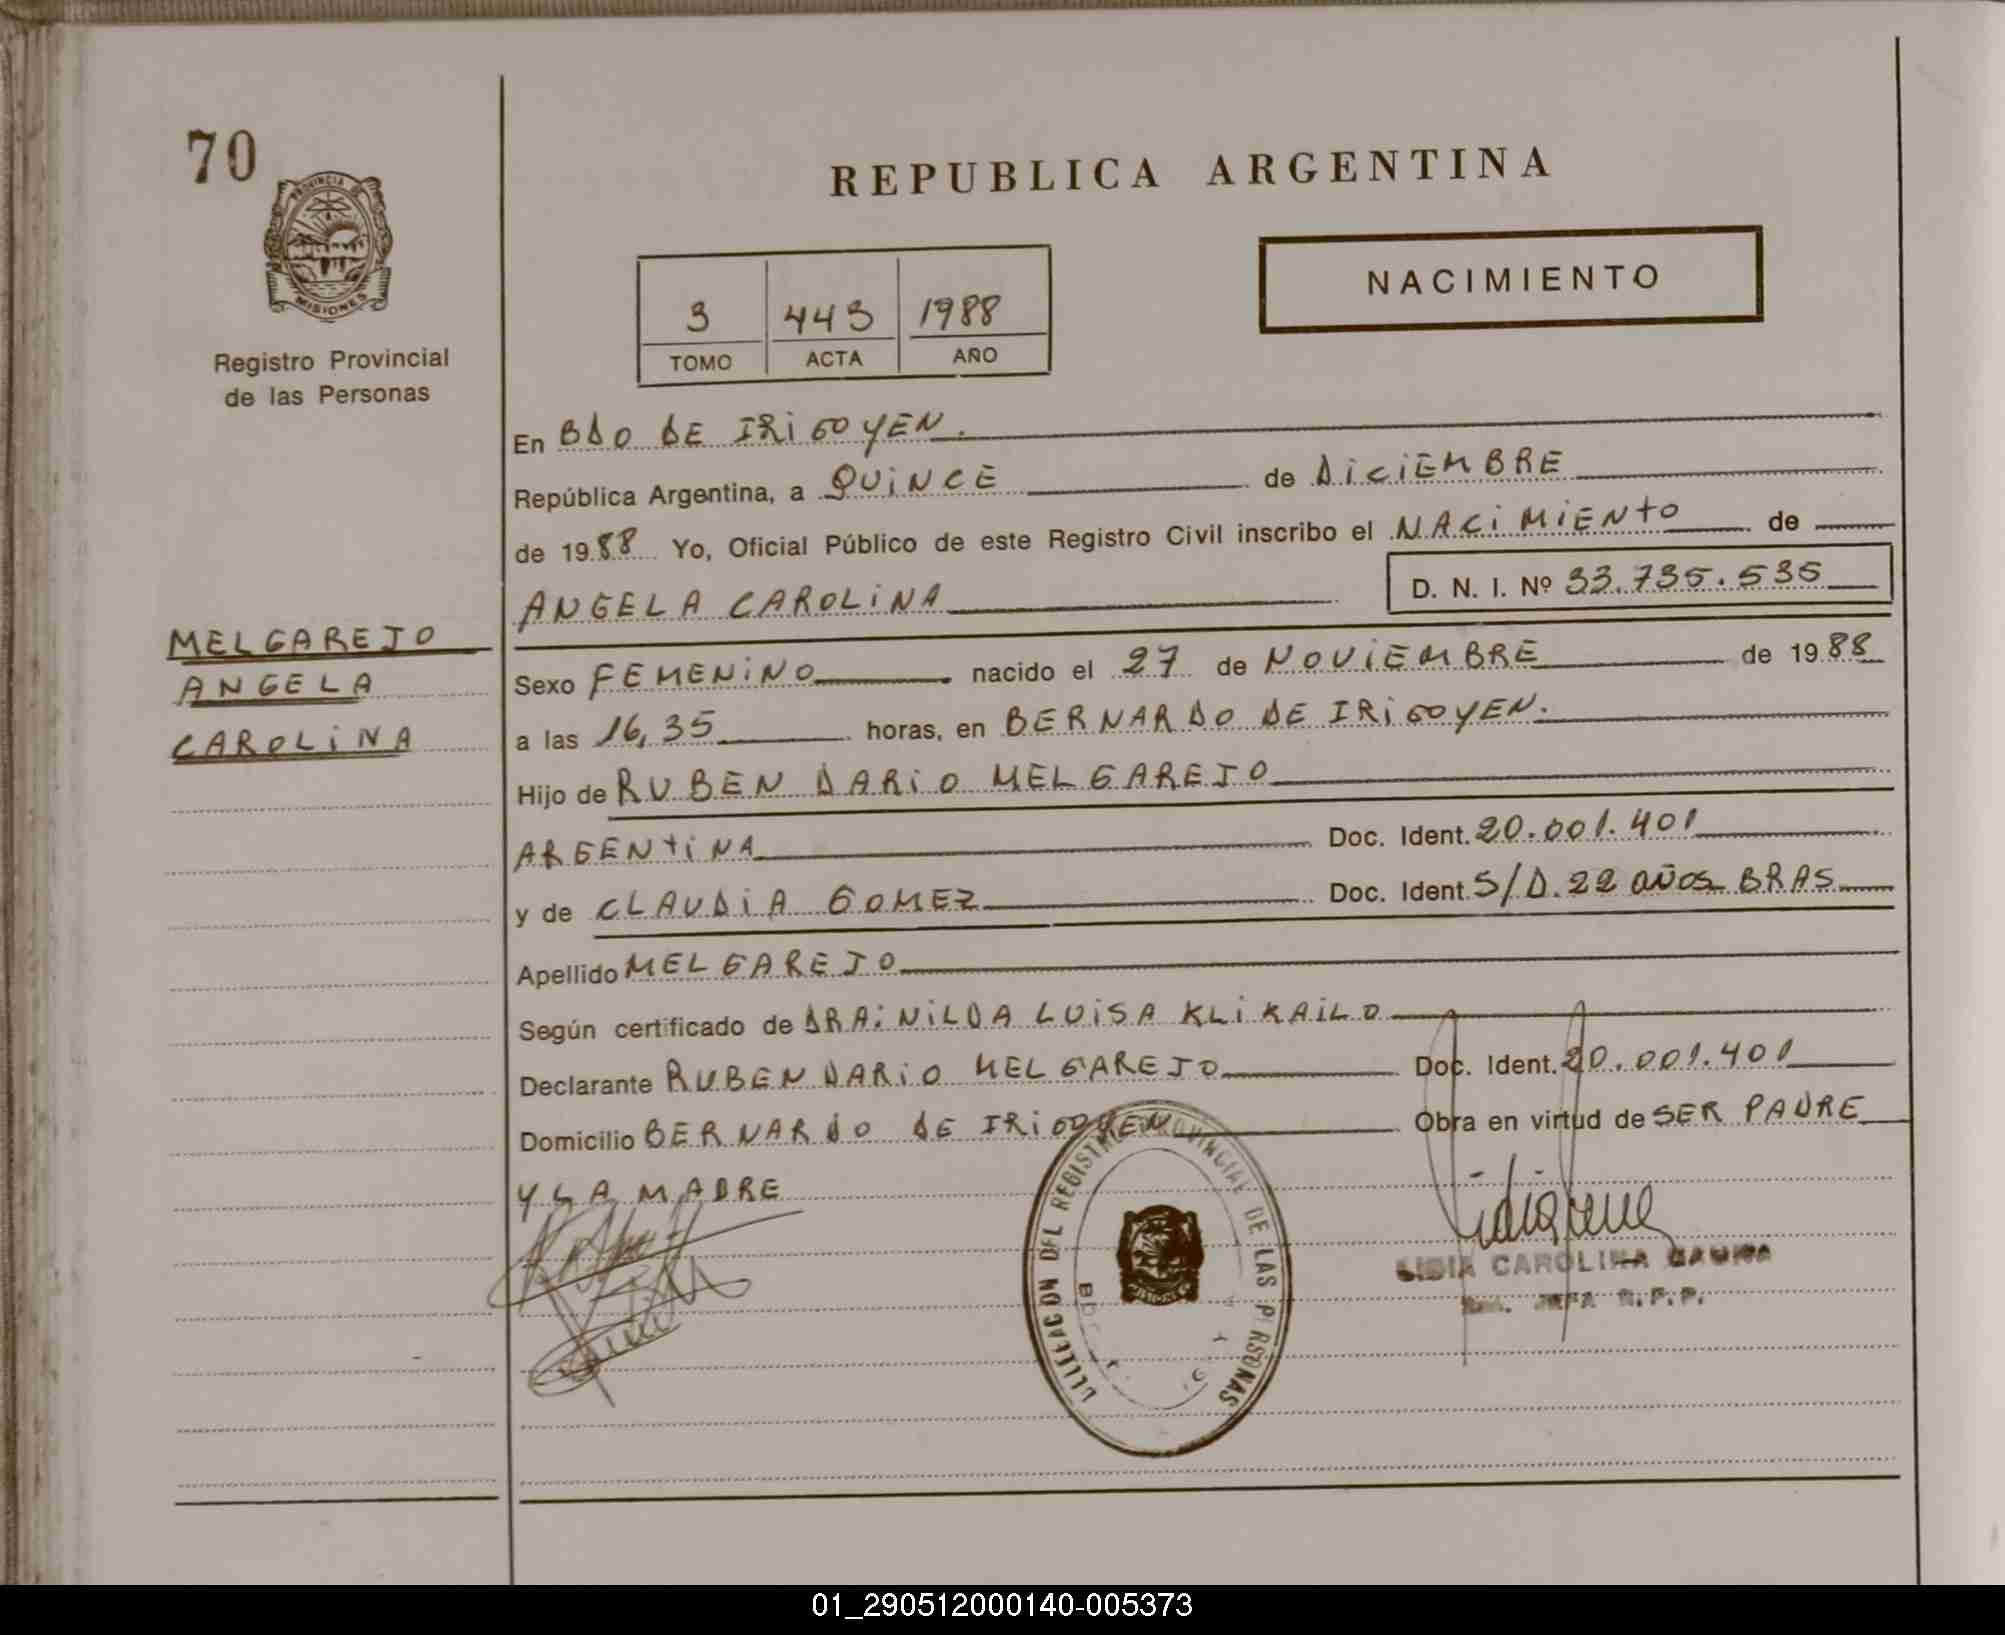 70
PROVINCIA DE
MISIONES
Registro Provincial
de las Personas
REPUBLICA ARGENTINA
NACIMIENTO
3 443 1988
TOMO ACTA AÑO
En BDO DE IRIGOYEN.
República Argentina, a QUINCE de DICIEMBRE
de 1988 Yo, Oficial Público de este Registro Civil inscribo el NACIMIENTO de
ANGELA CAROLINA D. N. I. Nº 33.735.535
MELGAREJO
ANGELA
CAROLINA
Sexo FEMENINO nacido el 27 de NOVIEMBRE de 1988
a las 16,35 horas, en BERNARDO DE IRIGOYEN.
Hijo de RUBEN DARIO MELGAREJO
ARGENTINA Doc. Ident. 20.001.401
y de CLAUDIA GOMEZ Doc. Ident. S/D. 22 AÑOS BRAS
Apellido MELGAREJO
Según certificado de DRA: NILDA LUISA KLIKAILO
Declarante RUBEN DARIO MELGAREJO Doc. Ident. 20.001.401
Domicilio BERNARDO DE IRIGOYEN Obra en virtud de SER PADRE
Y LA MADRE
DELEGACION DEL REGISTRO PROVINCIAL DE LAS PERSONAS
LIDIA CAROLINA
JEFA R.P.P.
01_290512000140-005373